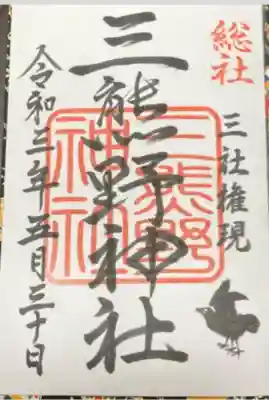 総社
三社権現
三熊野神社
三熊野神社
令和三年五月三十日